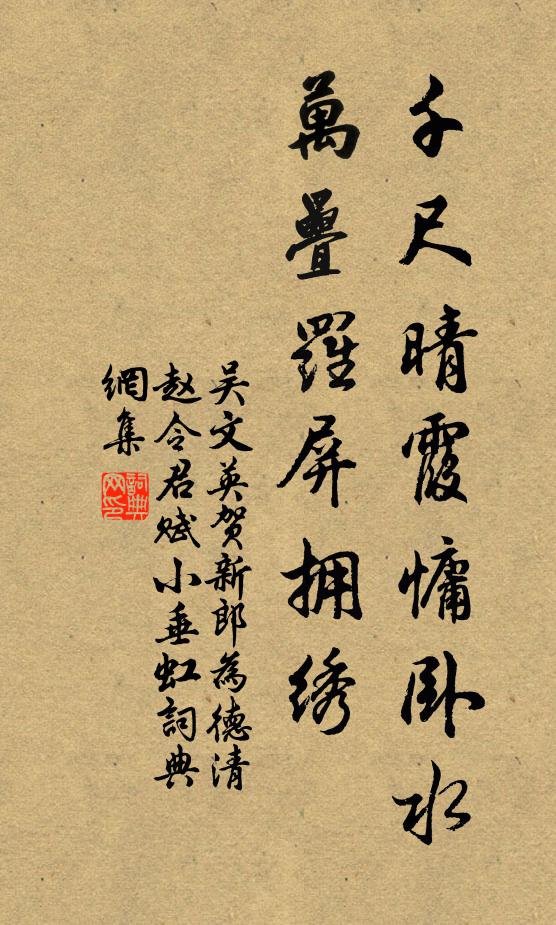 千尺晴霞慵卧水
萬疊羅屏拥绣
吴文英贺新郎為德清
赵令君赋小垂虹詞典
網集
詞典
网印